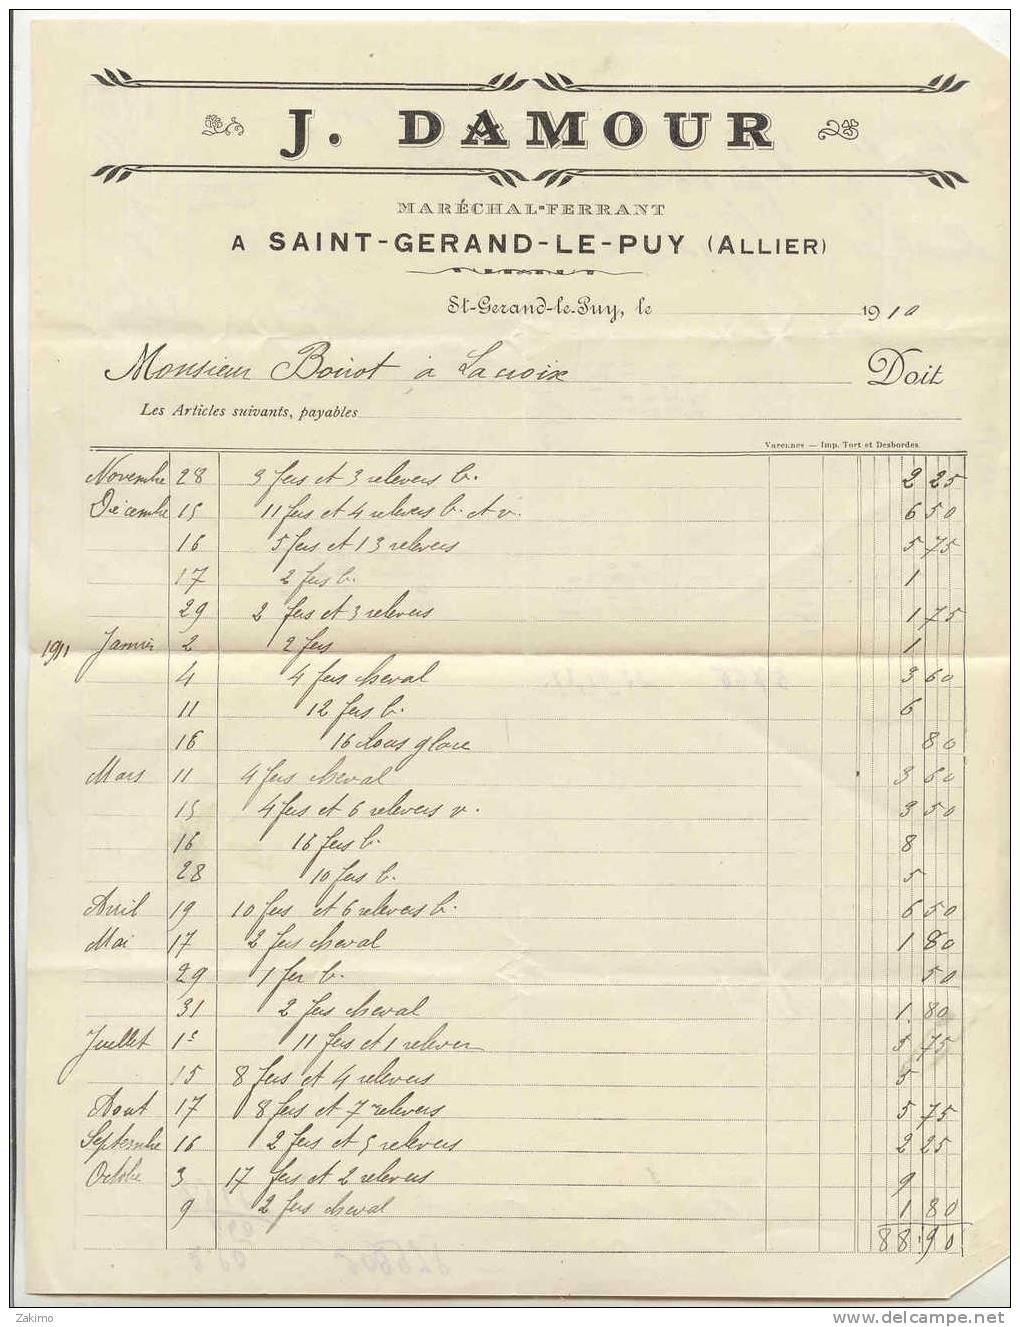 J. DAMOUR
MARÉCHAL-FERRANT
A SAINT-GERAND-LE-PUY (ALLIER)
St-Gerand-le-Puy, le 1910
Monsieur Boirot à Lacroix Doit
Les Articles suivants, payables
Varennes — Imp. Tort et Desbordes
Novembre 28 3 fers et 3 relevers b. 2 25
Décembre 15 11 fers et 4 relevers b. et v. 6 50
16 5 fers et 13 relevers 5 75
17 2 fers b. 1
29 2 fers et 3 relevers 1 75
1911 Janvier 2 2 fers 1
4 4 fers cheval 3 60
11 12 fers b. 6
16 16 clous glace 80
Mars 11 4 fers cheval 3 60
15 4 fers et 6 relevers v. 3 50
16 16 fers b. 8
28 10 fers b. 5
Avril 19 10 fers et 6 relevers b. 6 50
Mai 17 2 fers cheval 1 80
29 1 fer b. 50
31 2 fers cheval 1.80
Juillet 1er 11 fers et 1 relever 5 75
15 8 fers et 4 relevers 5
Aout 17 8 fers et 7 relevers 5 75
Septembre 16 2 fers et 5 relevers 2 25
Octobre 3 17 fers et 2 relevers 9
9 2 fers cheval 1 80
88.90
Zakimo
http://www.delcampe.net